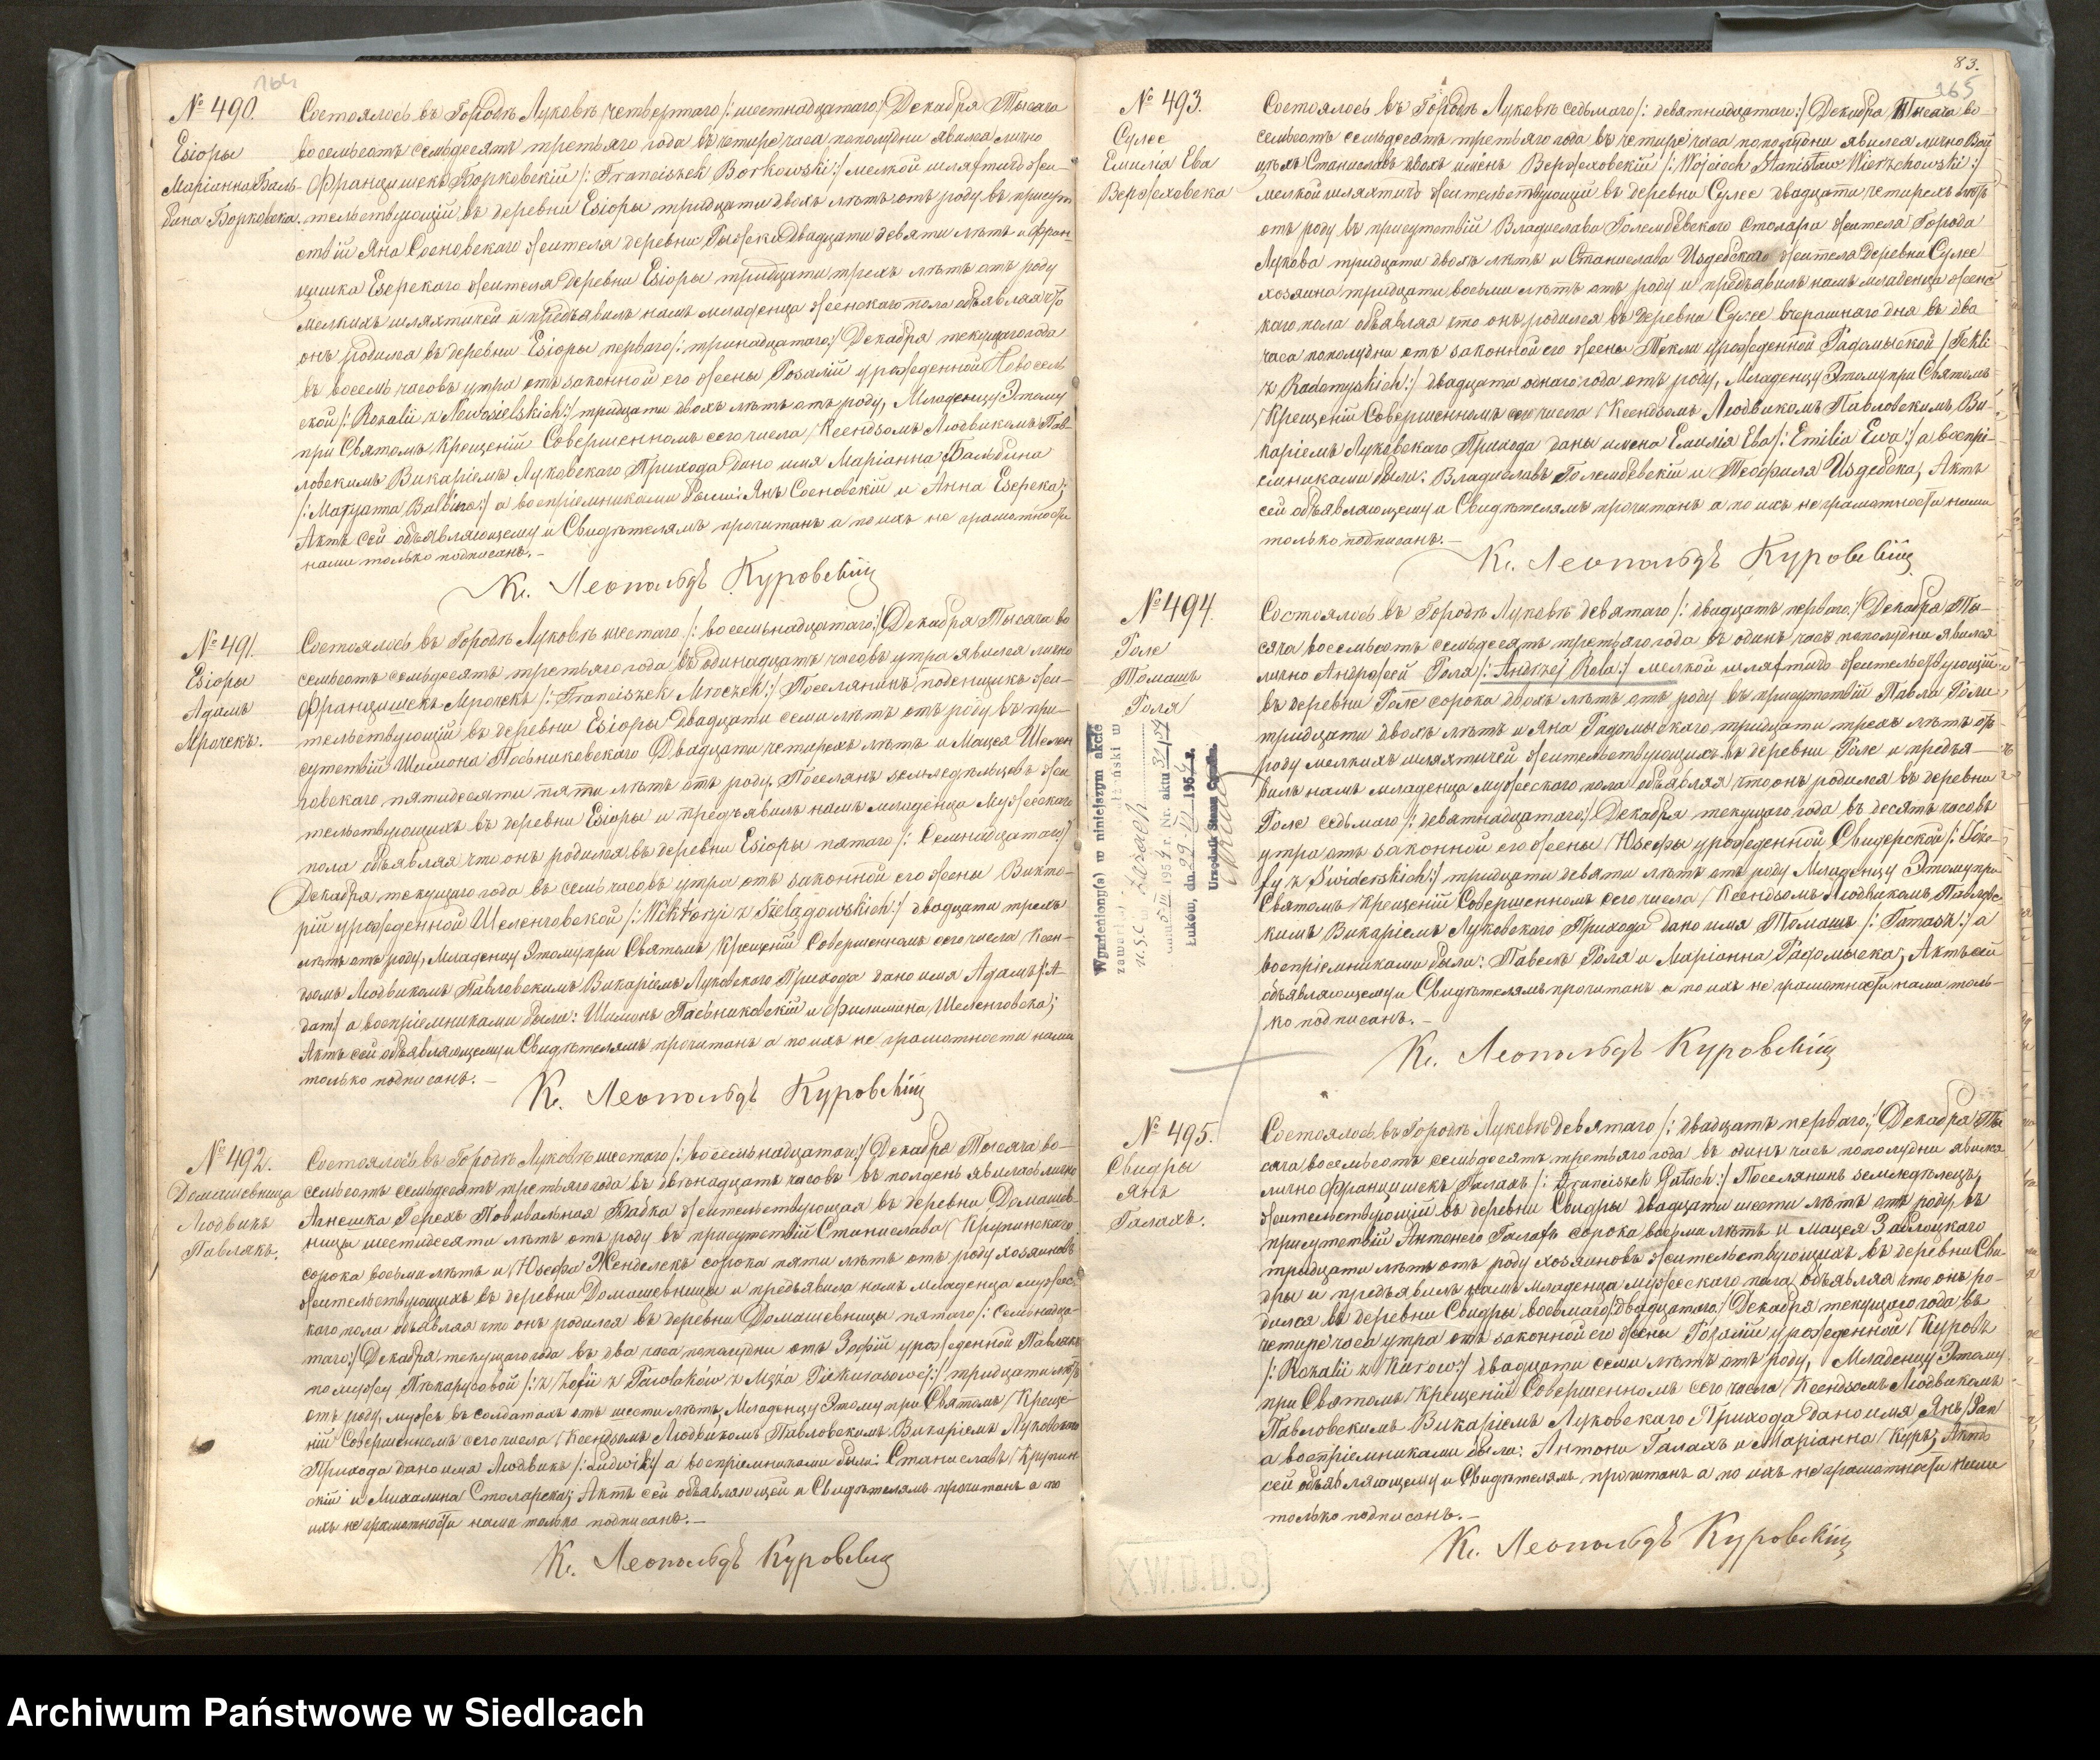 164
№ 490.
Езіоры
Маріанна Баль-
бина Борковска.
Состоялось въ Городѣ Луковѣ четвертаго /: шестнадцатаго :/ Декабря Тысяча
восемьсотъ семьдесятъ третьяго года въ четыре часа пополудни явился лично
Францишекъ Борковскій /: Franciszek Borkowski :/ мелкой шляхтичъ жи-
тельствующій въ деревни Езіоры тридцати двохъ лѣтъ отъ роду въ присут
ствіи Яна Сосновскаго жителя деревни двадцати девяти лѣтъ и Фран-
цишка Езерскаго жителя деревни Езіоры тридцати трехъ лѣтъ отъ роду
мелкихъ шляхтичей и предъявилъ намъ младенца женскаго пола объявляя что
онъ родился въ деревни Езіоры перваго /: тринадцатаго :/ Декабря текущаго года
въ восемь часовъ утра отъ законной его жены Розаліи урожденной Новосель
ской /: Rozalii z Nowosielskich :/ тридцати двохъ лѣтъ отъ роду, Младенцу Этому
при Святомъ Крещеніи Совершенномъ сего числа Ксендзомъ Людвикомъ Пав-
ловскимъ Викаріемъ Луковскаго Прихода дано имя Маріанна Бальбина
/: Maryanna Balbina :/ а воспріемниками были: Янъ Сосновскій и Анна Езерска;
Актъ сей объявляющему и Свидѣтелямъ прочитанъ а по ихъ не грамотности
нами только подписанъ. –
К. Леопольдъ Куровскій
№ 491.
Езіоры
Адамъ
Мрочекъ.
Состоялось въ Городѣ Луковѣ шестаго /: восемьнадцатаго :/ Декабря Тысяча во
семьсотъ семьдесятъ третьяго года въ одинадцать часовъ утра явился лично
Францишекъ Мрочекъ /: Franciszek Mroczek :/ Поселянинъ поденщикъ жи-
тельствующій въ деревни Езіоры двадцати семи лѣтъ отъ роду въ при-
сутствіи Шимона Двадцати четырехъ лѣтъ и Мацея Шелен
говскаго пятидесяти пяти лѣтъ отъ роду, Поселянъ земледѣльцовъ жи
тельствующихъ въ деревни Езіоры и предъявилъ намъ младенца Мужескаго
пола объявляя что онъ родился въ деревни Езіоры пятаго /: Семнадцатаго :/
Декабря текущаго года въ семь часовъ утра отъ законной его жены Викто-
ріи урожденной Шеленговской /: Wiktoryi z Szelągowskich :/ двадцати трехъ
лѣтъ отъ роду, Младенцу Этому при Святомъ Крещеніи Совершенномъ сего числа Ксен-
дзомъ Людвикомъ Павловскимъ Викаріемъ Луковскаго Прихода дано имя Адамъ /: A-
dam :/ а воспріемниками были: Шимонъ и Филимина Шеленговска;
Актъ сей объявляющему и Свидѣтелямъ прочитанъ а по ихъ не грамотности нами
только подписанъ. –
К. Леопольдъ Куровскій
№ 492.
Домашевница
Людвикъ
Павлякъ.
Состоялось въ Городѣ Луковѣ шестаго /: восемьнадцатаго :/ Декабря Тысяча во-
семьсотъ семьдесятъ третьяго года въ двѣнадцать часовъ въ полдень явилась лично
Агнешка Герехъ Повивальная Бабка жительствующая въ деревни Домашев-
ницы шестидесяти лѣтъ отъ роду въ присутствіи Станислава Крупинскаго
сорока восьми лѣтъ и Юзефа сорока пяти лѣтъ отъ роду хозяиновъ
жительствующихъ въ деревни Домашевницы и предъявила намъ младенца мужес-
каго пола объявляя что онъ родился въ деревни Домашевницы пятаго /: семьнадца-
таго :/ Декабря текущаго года въ два часа пополудни отъ Зофіи урожденной Павлякъ
по мужу Пѣкарусовой /: z Zofii z Pawlaków z męża Piekarusowéj :/ тридцати лѣтъ
отъ роду, мужъ въ солдатахъ отъ шести лѣтъ, Младенцу Этому при Святомъ Креще-
ніи Совершенномъ сего числа Ксендзомъ Людвикомъ Павловскимъ Викаріемъ Луковскаго
Прихода дано имя Людвикъ /: Ludwik :/ а воспріемниками были: Станиславъ Крупин
скій и Михалина Столярска; Актъ сей объявляющей и Свидѣтелямъ прочитанъ а по
ихъ не грамотности нами только подписанъ. –
К. Леопольдъ Куровскій
83.
165
№ 493.
Сулее
Емилія Ева
Вержеховска
Состоялось въ Городѣ Луковѣ седьмаго /: девятнадцатаго :/ Декабря Тысяча во
семьсотъ семьдесятъ третьяго года въ четыре часа пополудни явился лично Вой
цѣхъ Станиславъ двохъ именъ Вержеховскій /: Wojciech Stanisław Wierzchowski :/
мелкой шляхтичъ жительствующій въ деревни Сулее двадцати четырехъ лѣтъ
отъ роду въ присутствіи Владислава Голембевскаго Столяра жителя Города
Лукова тридцати двохъ лѣтъ и Станислава Издебскаго жителя деревни Сулее
хозяина тридцати восьми лѣтъ отъ роду и предъявилъ намъ младенца женс
каго пола объявляя что онъ родился въ деревни Сулее вчерашняго дня въ два
часа пополудни отъ законной его жены Текли урожденной Радомыской /: Tekli
z Radomyskich :/ двадцати однаго года отъ роду, Младенцу Этому при Святомъ
Крещеніи Совершенномъ сего числа Ксендзомъ Людвикомъ Павловскимъ Ви-
каріемъ Луковскаго Прихода даны имена Емилія Ева /: Emilia Ewa :/ а воспрі-
емниками были: Владиславъ Голембевскій и Теофиля Издебска, Актъ
сей объявляющему и Свидѣтелямъ прочитанъ а по ихъ не грамотности нами
только подписанъ. –
К. Леопольдъ Куровскій
№ 494
Голе
Томашъ
Роля
Wymieniony(a) w niniejszym akcie
zawarł
u.s.c.
1954 r. Nr. aktu
Łuków, dn. 29 195
Urzędnik Stanu Cywiln.
Состоялось въ Городѣ Луковѣ девятаго /: двадцать перваго :/ Декабря Ты-
сяча восемьсотъ семьдесятъ третьяго года въ одинъ часъ пополудни явился
лично Андржей Роля /: Andrzej Rola :/ мелкой шляхтичъ жительствующій
въ деревни сорока двохъ лѣтъ отъ роду въ присутствіи Павла Роли
тридцати двохъ лѣтъ и Яна Радомыскаго тридцати трехъ лѣтъ отъ
роду мелкихъ шляхтичей жительствующихъ въ деревни и предъя-
вилъ намъ младенца мужескаго пола объявляя что онъ родился въ деревни
седьмаго /: девятнадцатаго :/ Декабря текущаго года въ десять часовъ
утра отъ законной его жены Юзефы урожденной Свидерской /: Józe-
fy z Świderskich :/ тридцати девяти лѣтъ отъ роду Младенцу Этому при
Святомъ Крещеніи Совершенномъ сего числа Ксендзомъ Людвикомъ Павловс
кимъ Викаріемъ Луковскаго Прихода дано имя Томашъ /: Tomasz :/ а
воспріемниками были: Павелъ Роля и Маріанна Радомыска, Актъ сей
объявляющему и Свидѣтелямъ прочитанъ а по ихъ не грамотности нами толь-
ко подписанъ. –
К. Леопольдъ Куровскій
№ 495.
Свидры
Янъ
Галахъ.
Состоялось въ Городѣ Луковѣ девятаго /: двадцать перваго :/ Декабря Ты
сяча восемьсотъ семьдесятъ третьяго года въ одинъ часъ пополудни явился
лично Францишекъ Галахъ /: Franciszek Gałach :/ Поселянинъ земледѣлецъ,
жительствующій въ деревни Свидры двадцати шести лѣтъ отъ роду, въ
присутствіи Антонего Галахъ сорока восьми лѣтъ и Мацея Заблоцкаго
тридцати лѣтъ отъ роду хозяиновъ жительствующихъ въ деревни Сви-
дры и предъявилъ намъ младенца мужескаго пола, объявляя что онъ ро-
дился въ деревни Свидры восьмаго /: двадцатаго :/ Декабря текущаго года въ
четыре часа утра отъ законной его жены Розаліи урожденной Куровъ
/: Rozalii z Kurów :/ двадцати семи лѣтъ отъ роду, Младенцу Этому
при Святомъ Крещеніи Совершенномъ сего числа Ксендзомъ Людвикомъ
Павловскимъ Викаріемъ Луковскаго Прихода дано имя Янъ /: Jan
а воспріемниками были: Антони Галахъ и Маріанна Куръ; Актъ
сей объявляющему и Свидѣтелямъ прочитанъ а по ихъ не грамотности нами
только подписанъ. –
К. Леопольдъ Куровскій
X.W.D.D.S.
Archiwum Państwowe w Siedlcach